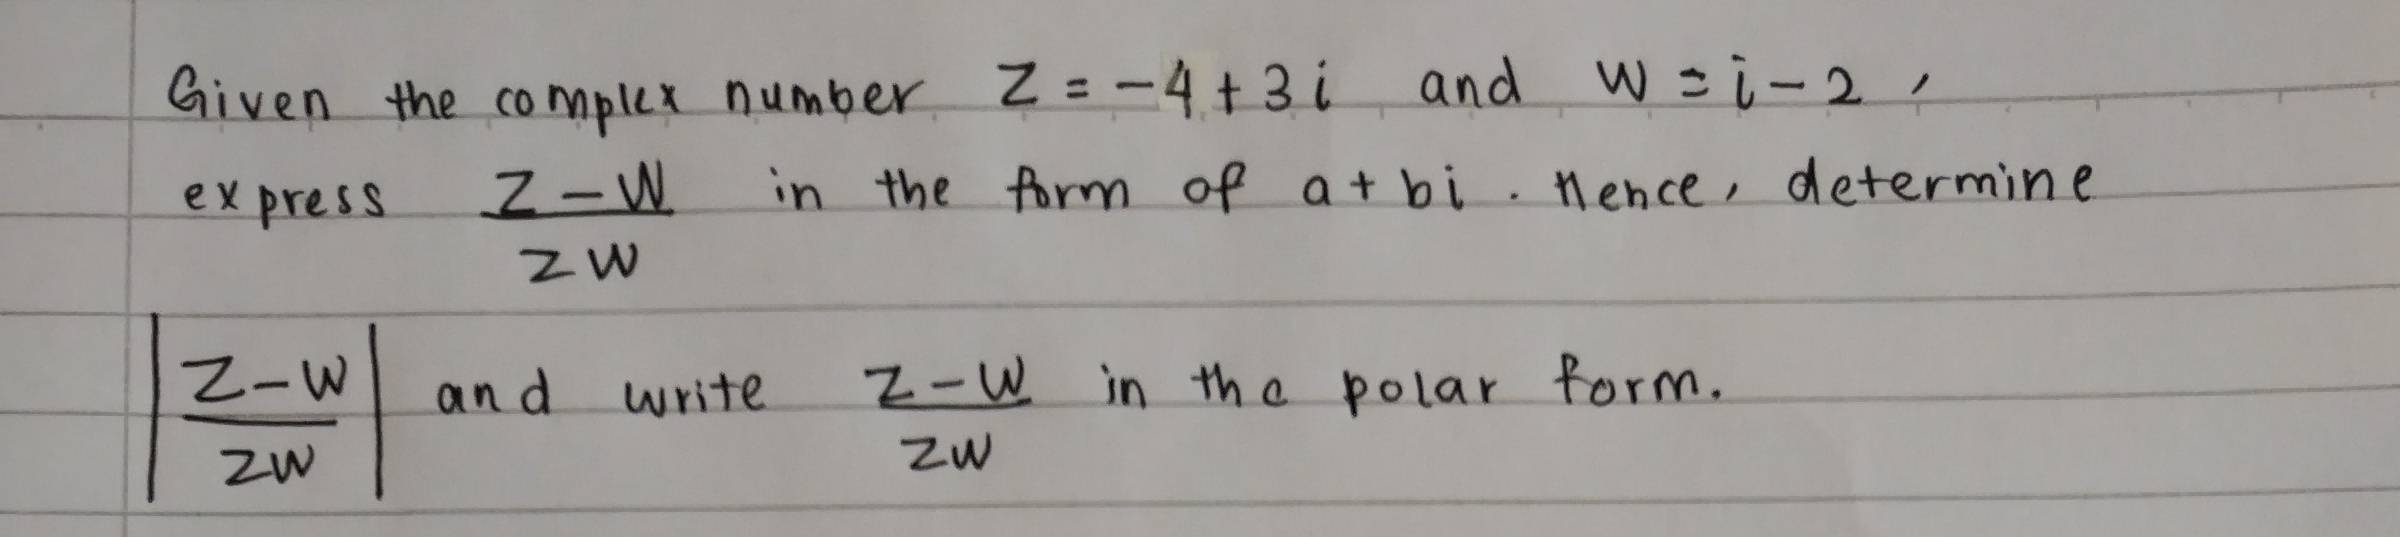 Given the complex number z = -4 + 3i and w = i - 2,
express \frac{z-w}{zw} in the form of a + bi. Hence, determine
\left|\frac{z-w}{zw}\right| and write \frac{z-w}{zw} in the polar form.